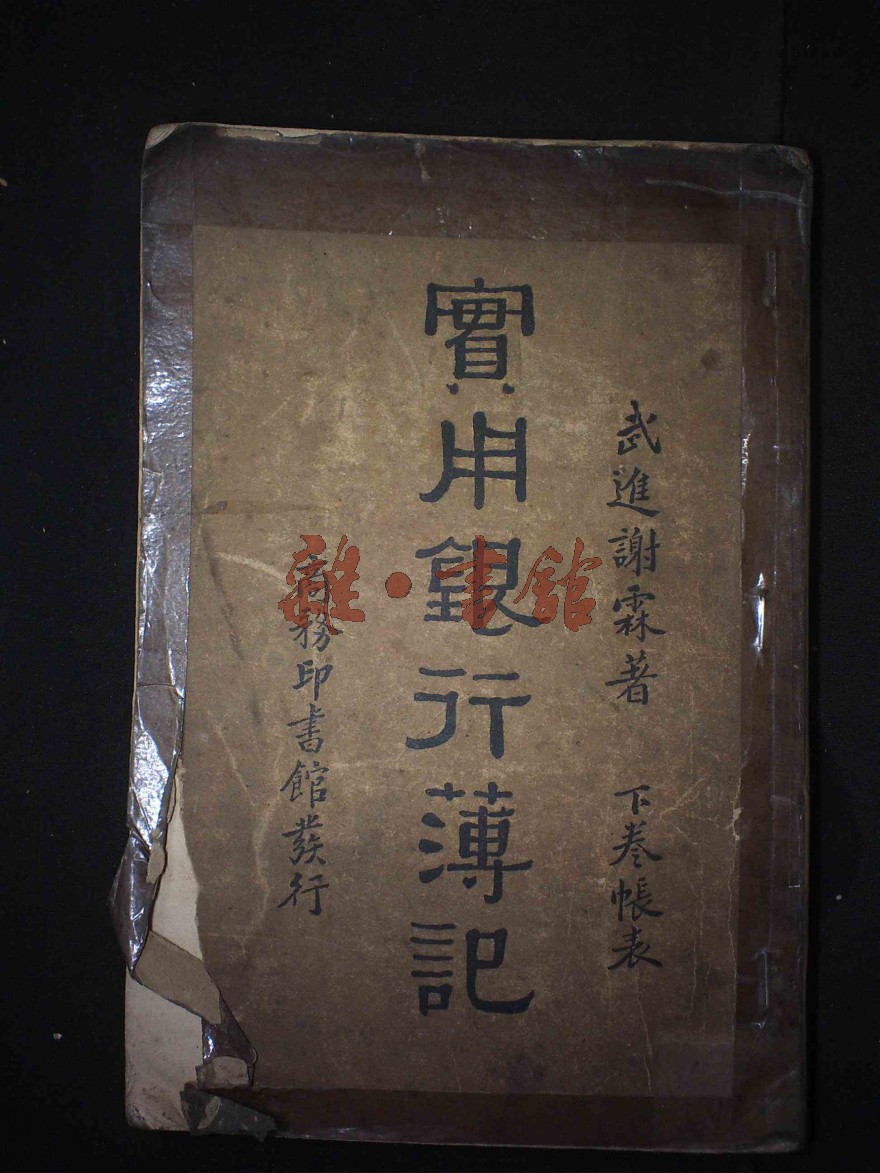 武進謝霖著 下卷帳表
實用銀行薄記
商務印書館發行
雜·書館